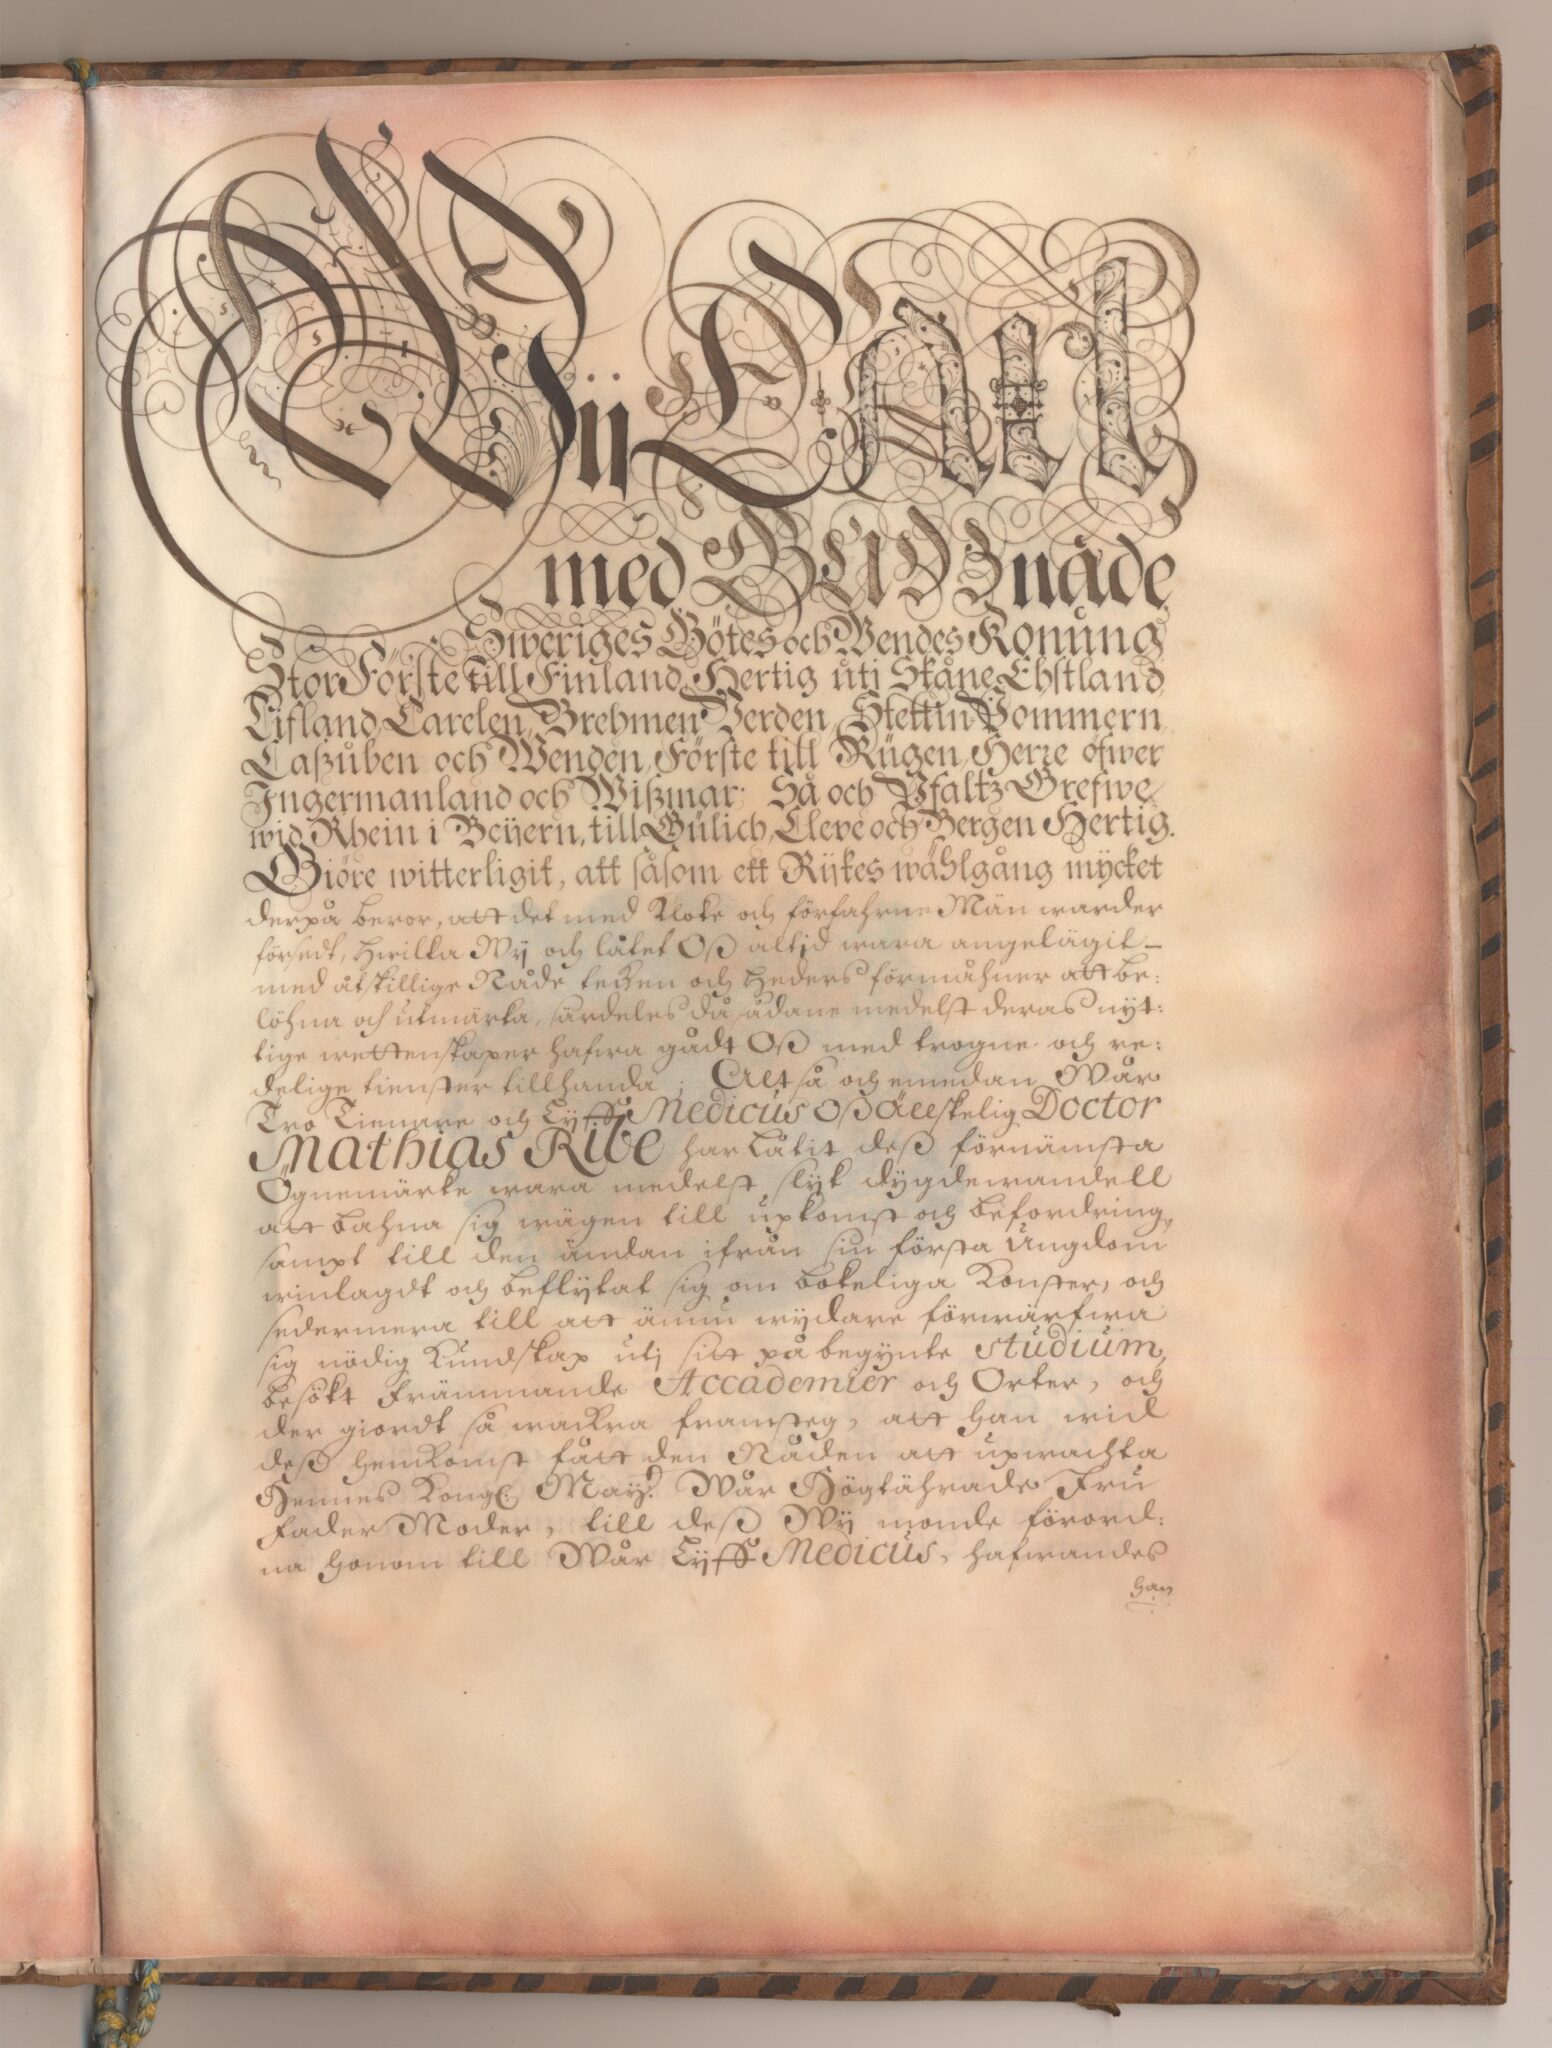 Wij Carl
med GUDZ nåde
Sweriges Götes och Wendes Konung
Stor Förste till Finland, Hertig uti Skåne, Ehstland
Lifland, Carelen, Brehmen, Verden, Stettin Pommern
Caßuben och Wenden, Förste till Rügen, Herre öfwer
Ingermanland och Wißmar; Så och Pfaltz Grefwe
wid Rhein i Beijern, till Gülich, Cleve och Bergen Hertig.
Giöre witterligit, att såsom ett Rijkes wählgång mycket
derpå beror, att det med Kloke och förfahrne Män warder
försedt, hwilka Wij och låtet Oß altid wara angelägit
med åtskillige Nåde tecken och heders förmåhner att be:
löhna och utmärka, särdeles då sådane medelst deras nyt:
tige wettenskaper hafwa gådt Oß med trogne och re:
delige tienster tillhanda; Altså och emedan Wår
Tro Tienare och Lijffs Medicus Oß Älskelig Doctor
Mathias Ribe har Låtit deß förnämsta
Ögnemärke wara medelst slijk dygdewandell
att bahna sig wägen till upkomst och befordring,
sampt till den ändan ifrån sin första Ungdom
winlagdt och beflijtat sig om bokeliga Konster, och
sedermera till att ännu wijdare förwärfwa
sig nödig Kundskap utj sitt påbegynte Studium,
besökt Främmande Accademier och Orter, och
der giordt så wackra framsteg, att han wid
deß hemkomst fått den Nåden att upwachta
Hennes Kongl: Maij:t Wår Högtährade Fru
Fader Moder, till deß Wij monde förord:
na honom till Wår Lijffs Medicus, hafwandes
han